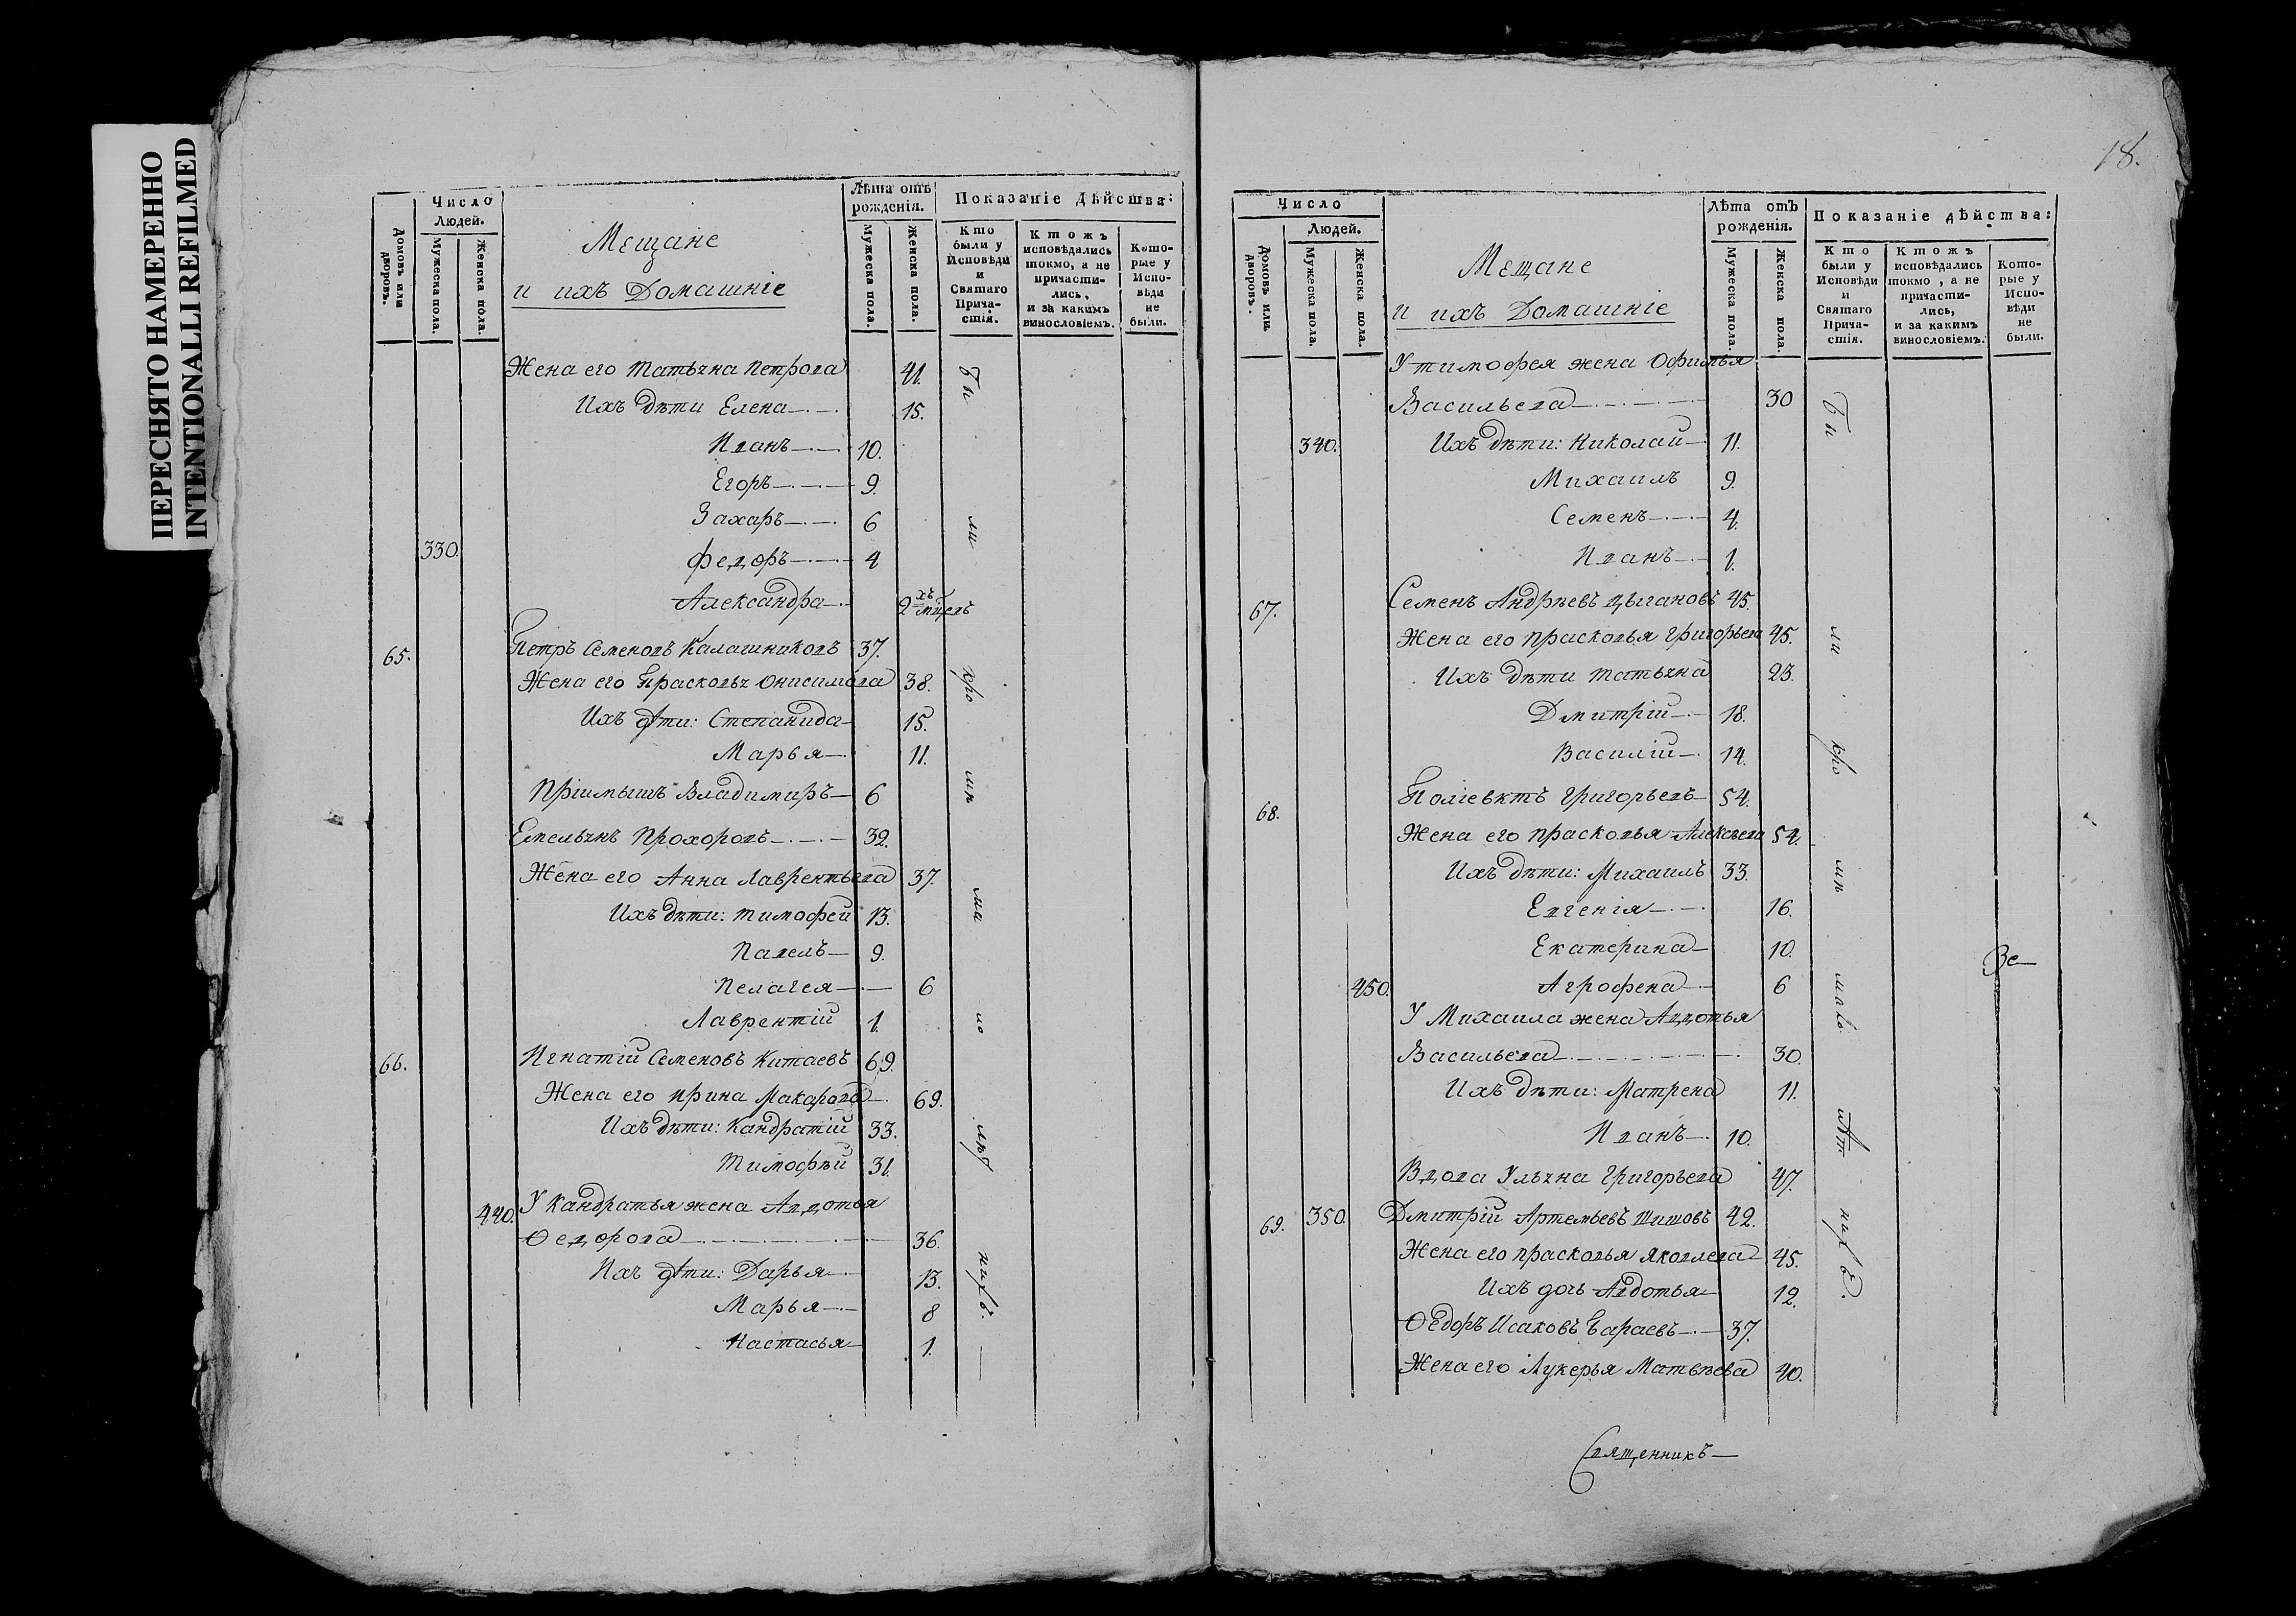 ПЕРЕСНЯТО НАМЕРЕННО
INTENTIONALLI REFILMED
Число Людей.
Домовъ или дворовъ.
Мужеска пола.
Женска пола.
Мещане
и ихъ Домашніе
Лѣта отъ рожденія.
Мужеска пола.
Женска пола.
Показаніе дѣйства:
Кто были у Исповѣди и Святаго Прича-стія.
Ктожъ исповѣдались токмо, а не причасти-лись, и за какимъ винословіемъ.
Кото-рые у Испо-вѣди не были.
Жена его Татьяна Петрова 41.
Ихъ дѣти Елена 15.
Иванъ 10.
Егоръ 9.
Захаръ 6
330. Федоръ 4
Александра 2хъ
65. Петръ Семеновъ Калашниковъ 37.
Жена его Прасковья Онисимова 38.
Ихъ дѣти: Степанида 15.
Марья 11.
Пріимышъ Владимиръ 6
Емельянъ Прохоровъ 32.
Жена его Анна Лаврентьева 37.
Ихъ дѣти: Тимофей 13.
Павелъ 9.
Пелагея 6
Лаврентій 1.
66. Игнатій Семеновъ Китаевъ 69.
Жена его Ирина Макарова 69.
Ихъ дѣти: Кандратій 33.
Тимофѣй 31.
440. У Кандратья жена Авдотья
Ѳедорова 36.
Ихъ дѣти: Дарья 13.
Марья 8
Настасья 1.
18.
Число Людей.
Домовъ или дворовъ.
Мужеска пола.
Женска пола.
Мещане
и ихъ Домашніе
Лѣта отъ рожденія.
Мужеска пола.
Женска пола.
Показаніе дѣйства:
Кто были у Исповѣди и Святаго Прича-стія.
Ктожъ исповѣдались токмо, а не причасти-лись, и за какимъ винословіемъ.
Кото-рые у Испо-вѣди не были.
У Тимофея жена Офимья
Васильева 30
340. Ихъ дѣти: Николай 11.
Михаилъ 9.
Семенъ 4.
Иванъ 1.
67. Семенъ Андрѣевъ Цыгановъ 45.
Жена его Прасковья Григорьева 45.
Ихъ дѣти Татьяна 23.
Дмитрій 18.
Василій 14.
68. Поліевктъ Григорьевъ 54.
Жена его Прасковья Алексѣева 54.
Ихъ дѣти: Михаилъ 33.
Евгенія 16.
Екатерина 10.
450. Агрофена 6
У Михаила жена Авдотья
Васильева 30.
Ихъ дѣти: Матрена 11.
Иванъ 10.
Вдова Ульяна Григорьева 47.
69. 350. Дмитрій Артемьевъ Шишовъ 42.
Жена его Прасковья Яковлева 45.
Ихъ дочь Авдотья 12.
Ѳедоръ Исаковъ Бараевъ 37.
Жена его Лукерья Матвѣева 40.
Священникъ